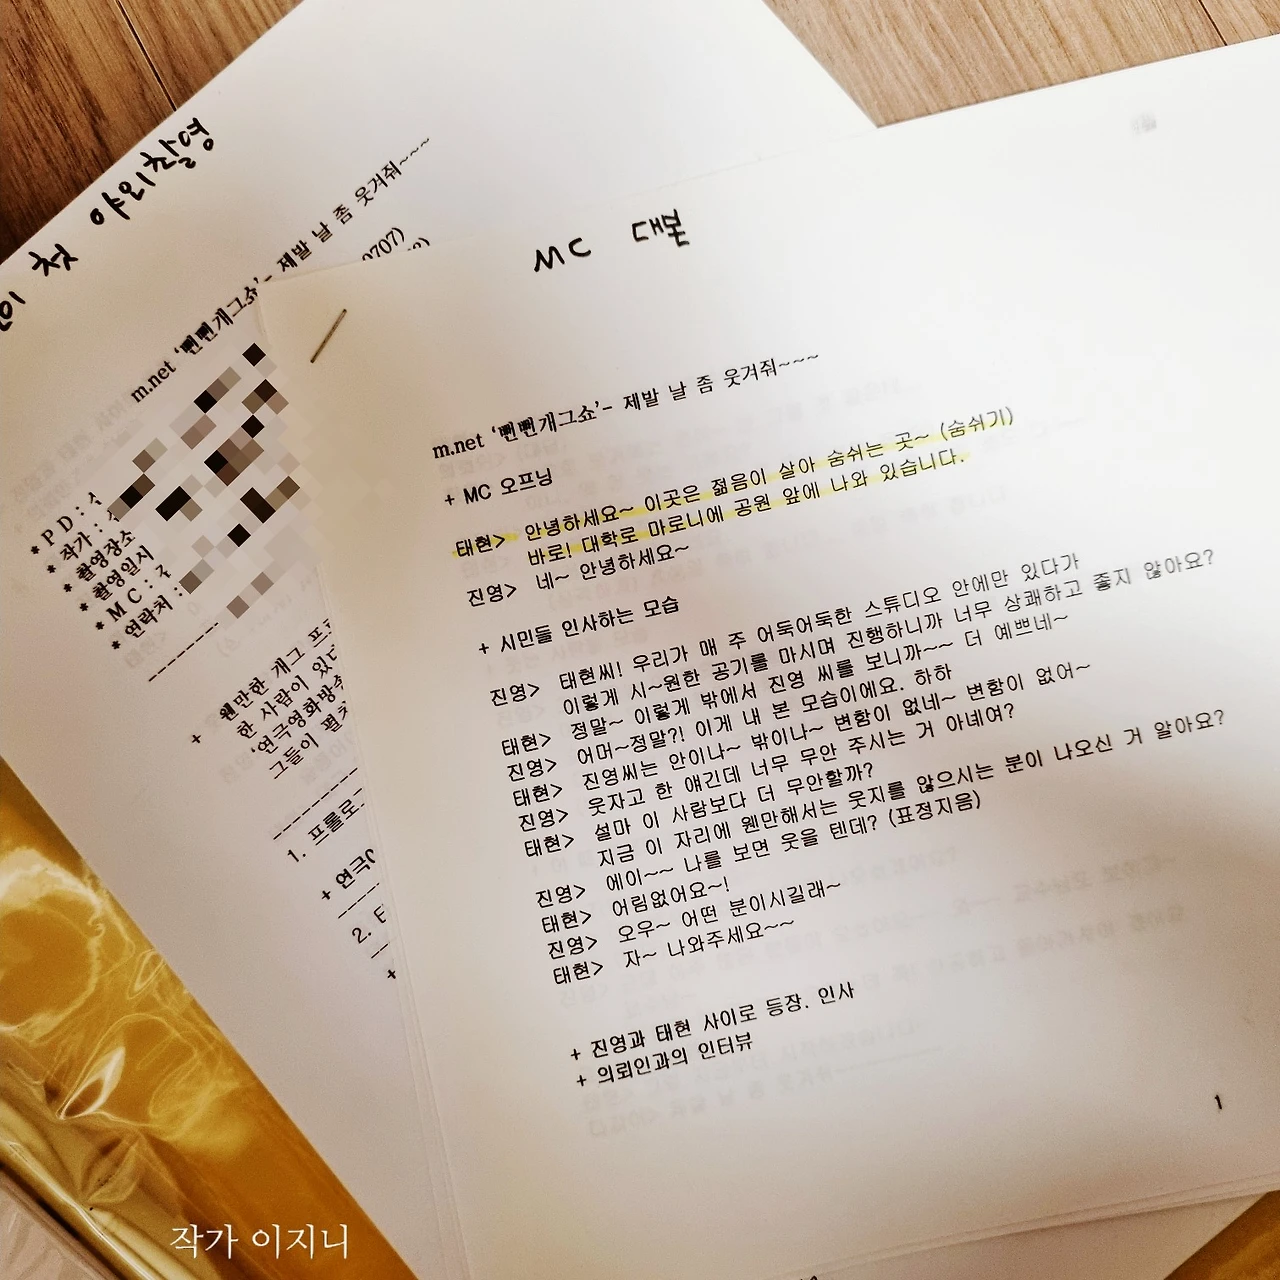 첫 야외촬영
m.net ‘뻔뻔개그쇼’- 제발 날 좀 웃겨줘~~~
0707)
* P D :
* 작가 :
* 촬영장소
* 촬영일시
* M C :
* 연락처 :
+ 웬만한 개그 프
한 사람이 있다
‘연극영화방송
그들이 펼치
1. 프롤로
+ 연극
2.
+
MC 대본
m.net ‘뻔뻔개그쇼’- 제발 날 좀 웃겨줘~~~
+ MC 오프닝
태현> 안녕하세요~ 이곳은 젊음이 살아 숨쉬는 곳~ (숨쉬기)
바로! 대학로 마로니에 공원 앞에 나와 있습니다.
진영> 네~ 안녕하세요~
+ 시민들 인사하는 모습
진영> 태현씨! 우리가 매 주 어둑어둑한 스튜디오 안에만 있다가
이렇게 시~원한 공기를 마시며 진행하니까 너무 상쾌하고 좋지 않아요?
태현> 정말~ 이렇게 밖에서 진영 씨를 보니까~~ 더 예쁘네~
진영> 어머~정말?! 이게 내 본 모습이에요. 하하
태현> 진영씨는 안이나~ 밖이나~ 변함이 없네~ 변함이 없어~
진영> 웃자고 한 얘긴데 너무 무안 주시는 거 아녜여?
태현> 설마 이 사람보다 더 무안할까?
지금 이 자리에 웬만해서는 웃지를 않으시는 분이 나오신 거 알아요?
진영> 에이~~ 나를 보면 웃을 텐데? (표정지음)
태현> 어림없어요~!
진영> 오우~ 어떤 분이시길래~
태현> 자~ 나와주세요~~
+ 진영과 태현 사이로 등장. 인사
+ 의뢰인과의 인터뷰
1
작가 이지니